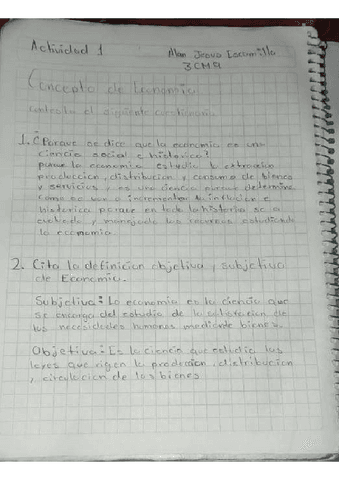 Actividad 1
Alan Jesus Escamilla
3CM51
Concepto de Economia
contesta el siguiente cuestionario
1. ¿Porque se dice que la economia es una
ciencia social e historica?
porque la economia estudia la extraccion
produccion, distribucion y consumo de bienes
y servicios y es una ciencia porque determina
como se va a incrementar la inflacion e
historica porque en toda la historia se a
evaluado y manejado los recursos estudiando
la economia.
2. Cita la definicion objetiva y subjetiva
de Economia.
Subjetiva: La economia es la ciencia que
se encarga del estudio de la satisfaccion de
las necesidades humanas mediante bienes.
Objetiva: Es la ciencia que estudia las
leyes que rigen la produccion, distribucion
y circulacion de los bienes